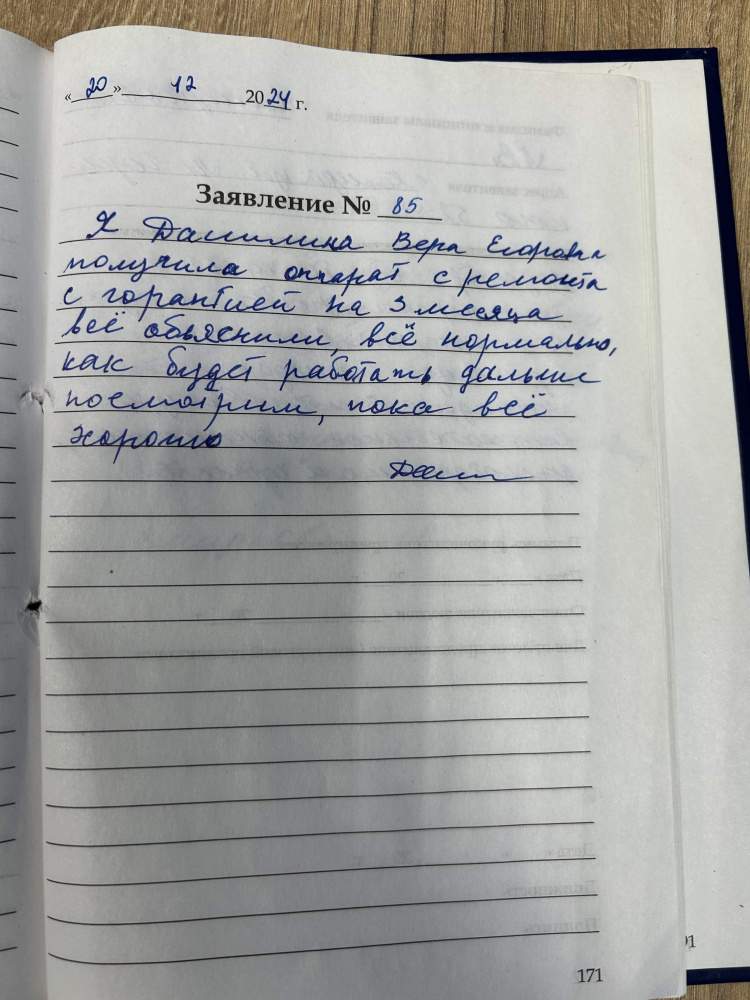 «20» 12 2024 г.
Заявление № 85
Я Данилина Вера Егоровна
получила аппарат с ремонта
с горантией на 3 месяца
всё объяснили, всё нормально,
как будет работать дальше
посмотрим, пока всё
хорошо
171
91